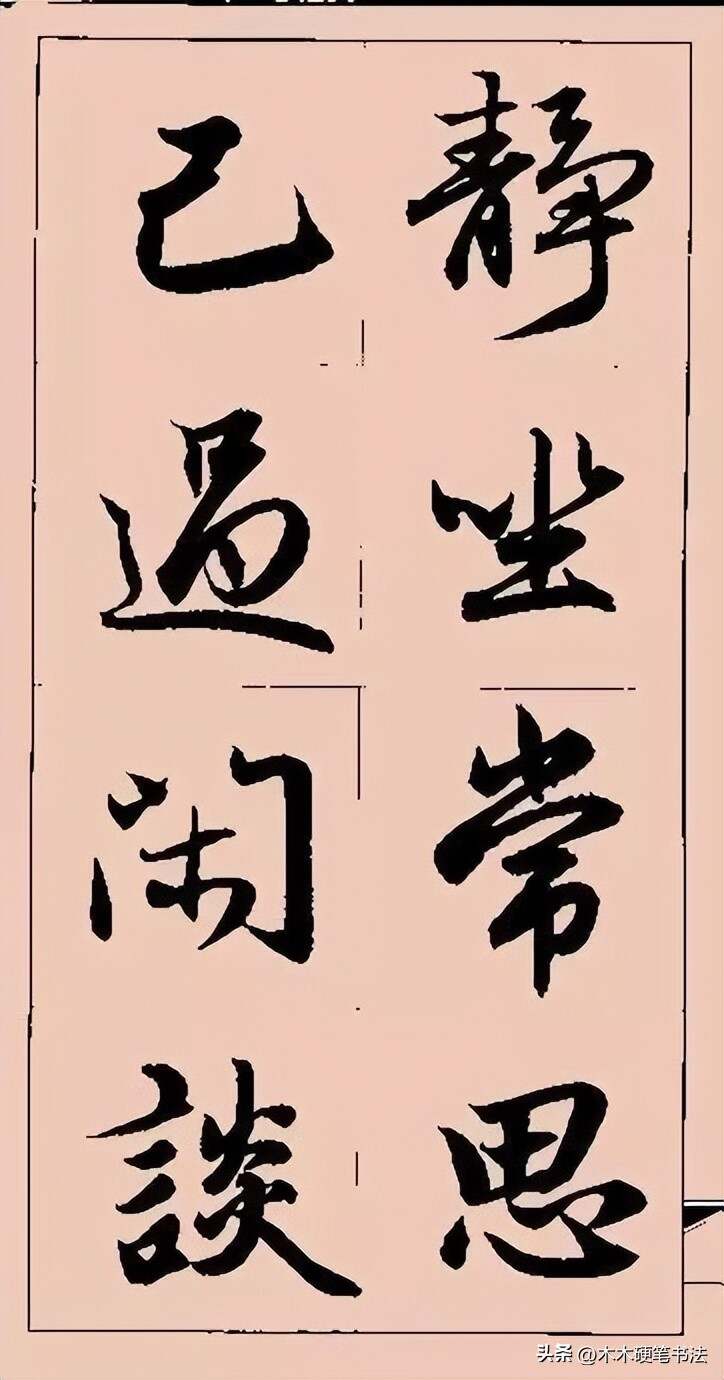 靜坐常思
己過閑談
头条 @木木硬笔书法